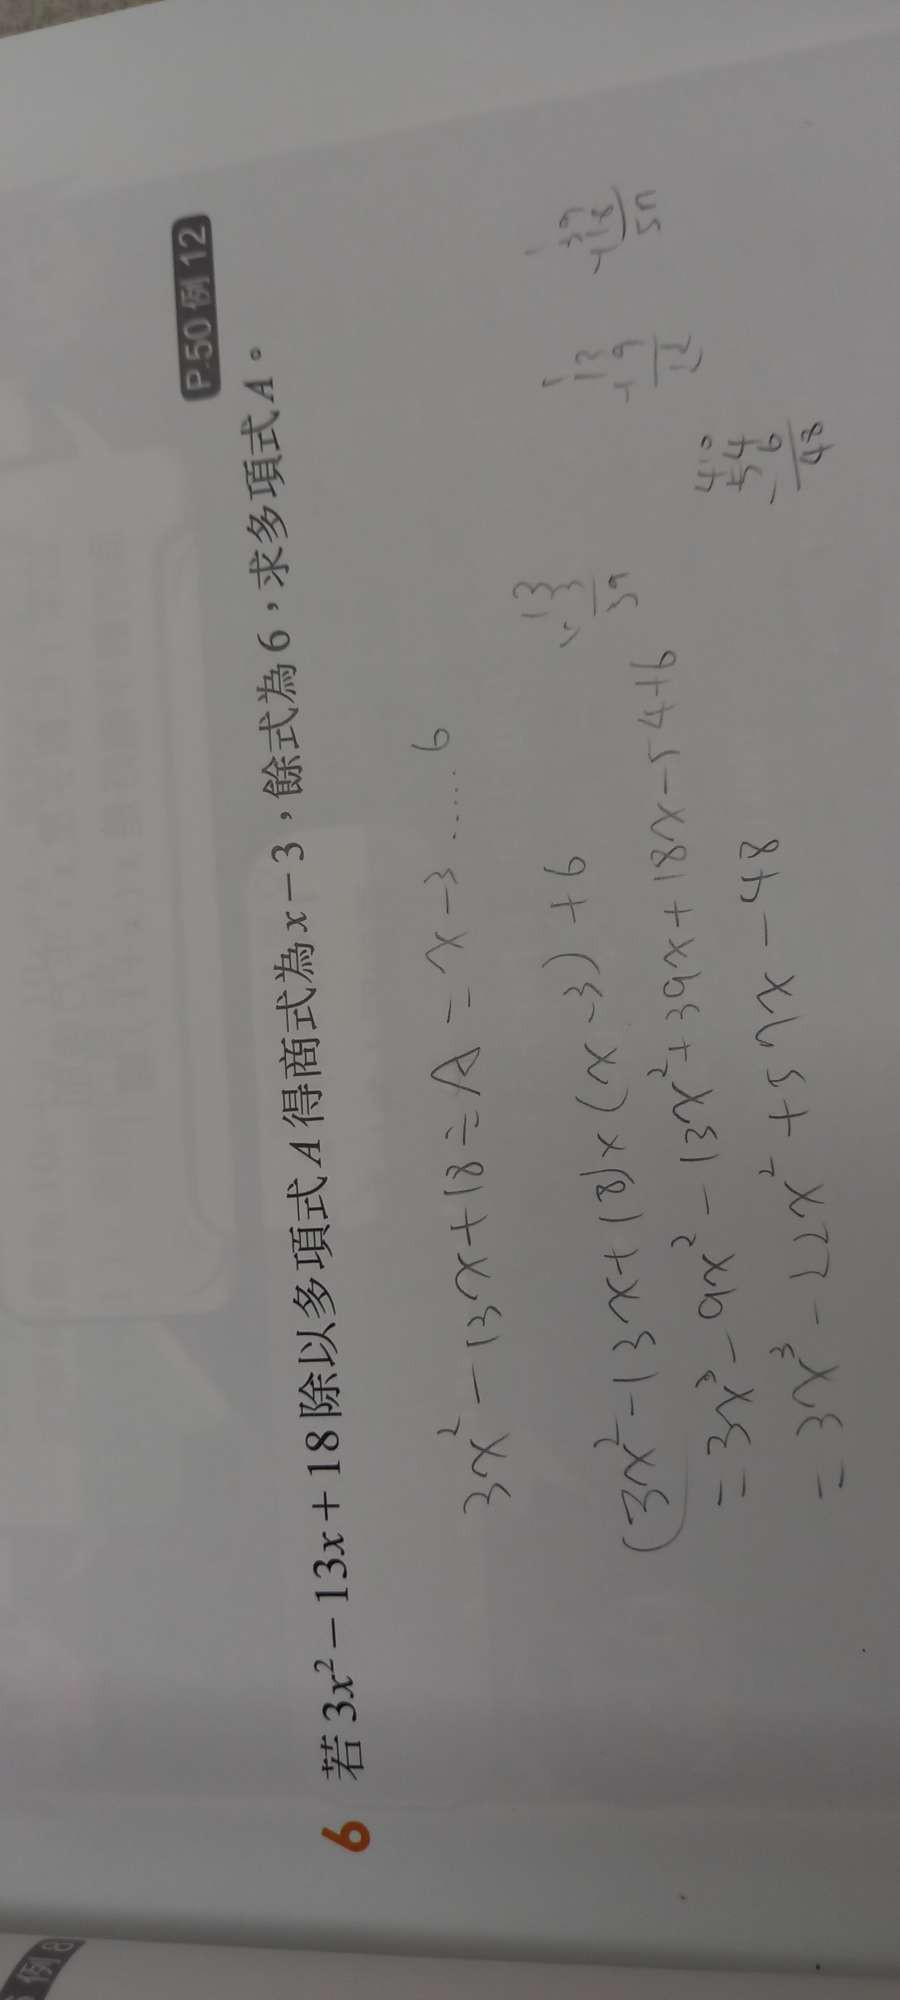 P.50 例 12
6 若 3x² − 13x + 18 除以多項式 A 得商式為 x − 3，餘式為 6，求多項式 A。
3x² − 13x + 18 ÷ A = x − 3 …… 6
(3x² − 13x + 18) × (x − 3) + 6
= 3x³ − 9x² − 13x² + 39x + 18x − 54 + 6
= 3x³ − 22x² + 57x − 48
13
× 3
39
1
13
+ 9
22
1
39
+ 18
57
4 10
54
− 6
48
例 8